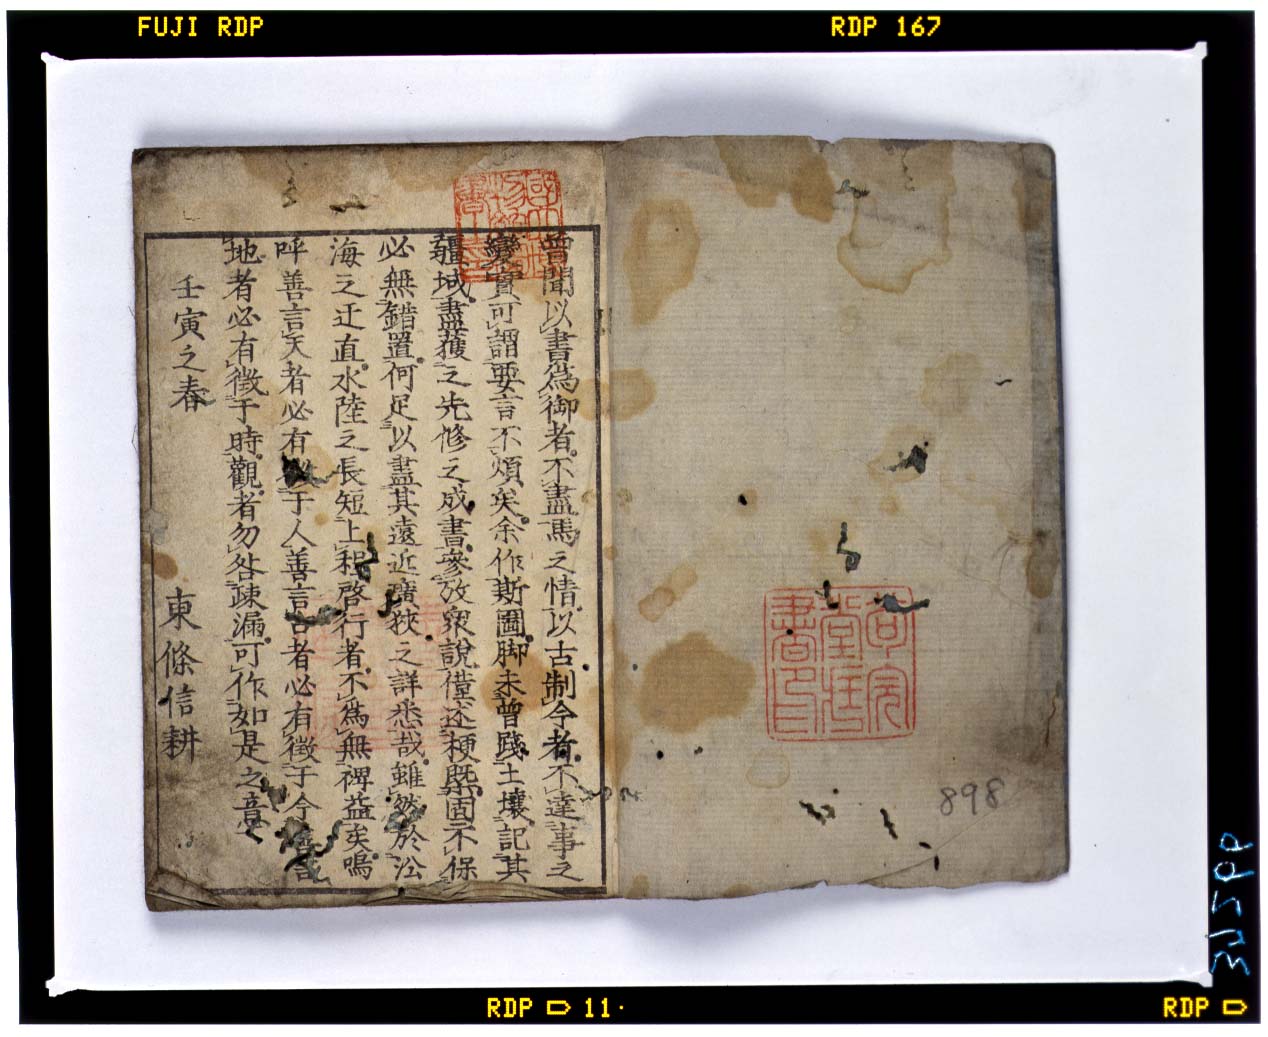 FUJI RDP
RDP 167
曾聞以書爲御者不盡馬之情以古制今者不達事之
變實可謂要言不煩矣余作斯圖脚未曾踐土壤記其
疆域盡獲之先修之成書參攷衆說僅述梗槩固不保
必無錯置何足以盡其遠近廣狹之詳悉哉雖然於沿
海之迂直水陸之長短上程啓行者不爲無裨益矣嗚
呼善言天者必有于人善言古者必有徵于今善言
地者必有徵于時觀者勿咎疎漏可作如是之意
壬寅之春
東條信耕
898
RDP 11
RDP